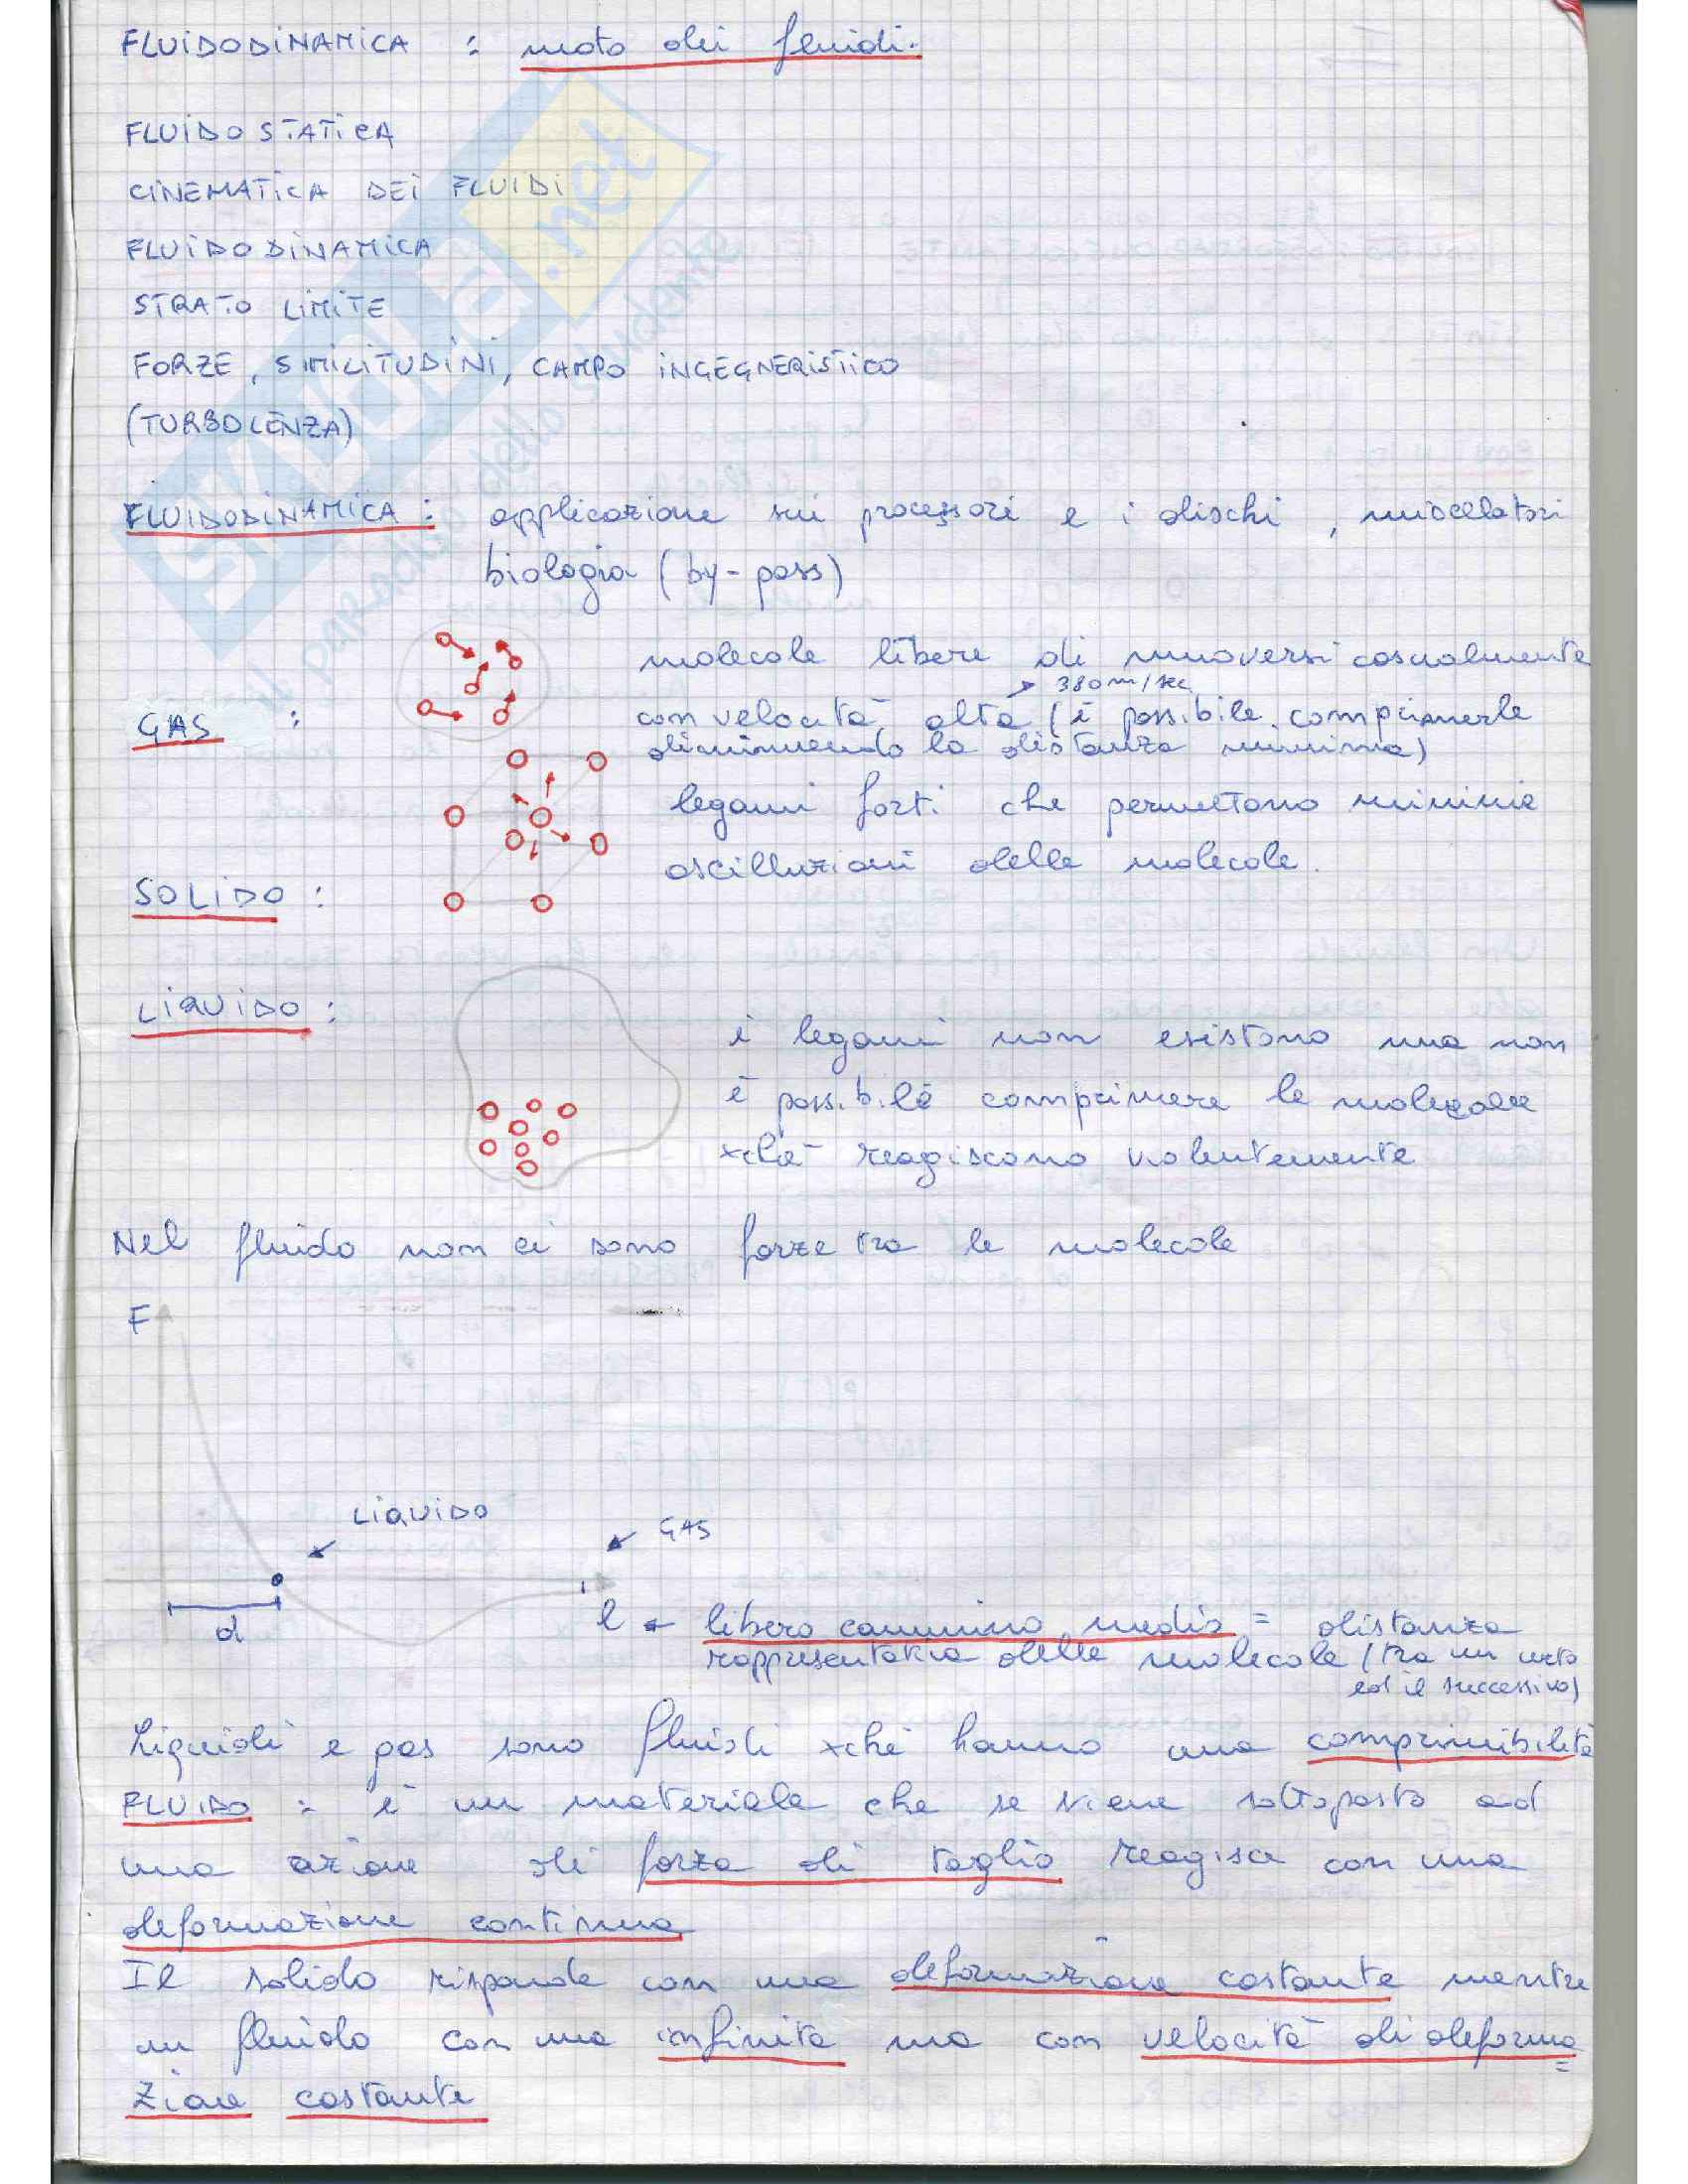 FLUIDODINAMICA : moto dei fluidi.
FLUIDOSTATICA
CINEMATICA DEI FLUIDI
FLUIDODINAMICA
STRATO LIMITE
FORZE, SIMILITUDINI, CAMPO INGEGNERISTICO
(TURBOLENZA)
FLUIDODINAMICA : applicazione sui processori e i dischi, miscelatori
biologia (by-pass)
molecole libere di muoversi casualmente
→ 380 m/sec
GAS : con velocità alta (è possibile comprimerle
diminuendo la distanza minima)
legami forti che permettono minime
oscillazioni delle molecole.
SOLIDO :
LIQUIDO :
i legami non esistono ma non
è possibile comprimere le molecole
xché reagiscono violentemente
Nel fluido non ci sono forze tra le molecole
F
LIQUIDO
GAS
d
l ← libero cammino medio = distanza
rappresentativa delle molecole (tra un urto
ed il successivo)
Liquidi e gas sono fluidi xché hanno una comprimibilità
FLUIDO : è un materiale che se viene sottoposto ad
una azione di forza di taglio reagisce con una
deformazione continua
Il solido risponde con una deformazione costante mentre
un fluido con una infinita ma con velocità di deforma=
zione costante
skuola.net
il paradiso dello studente